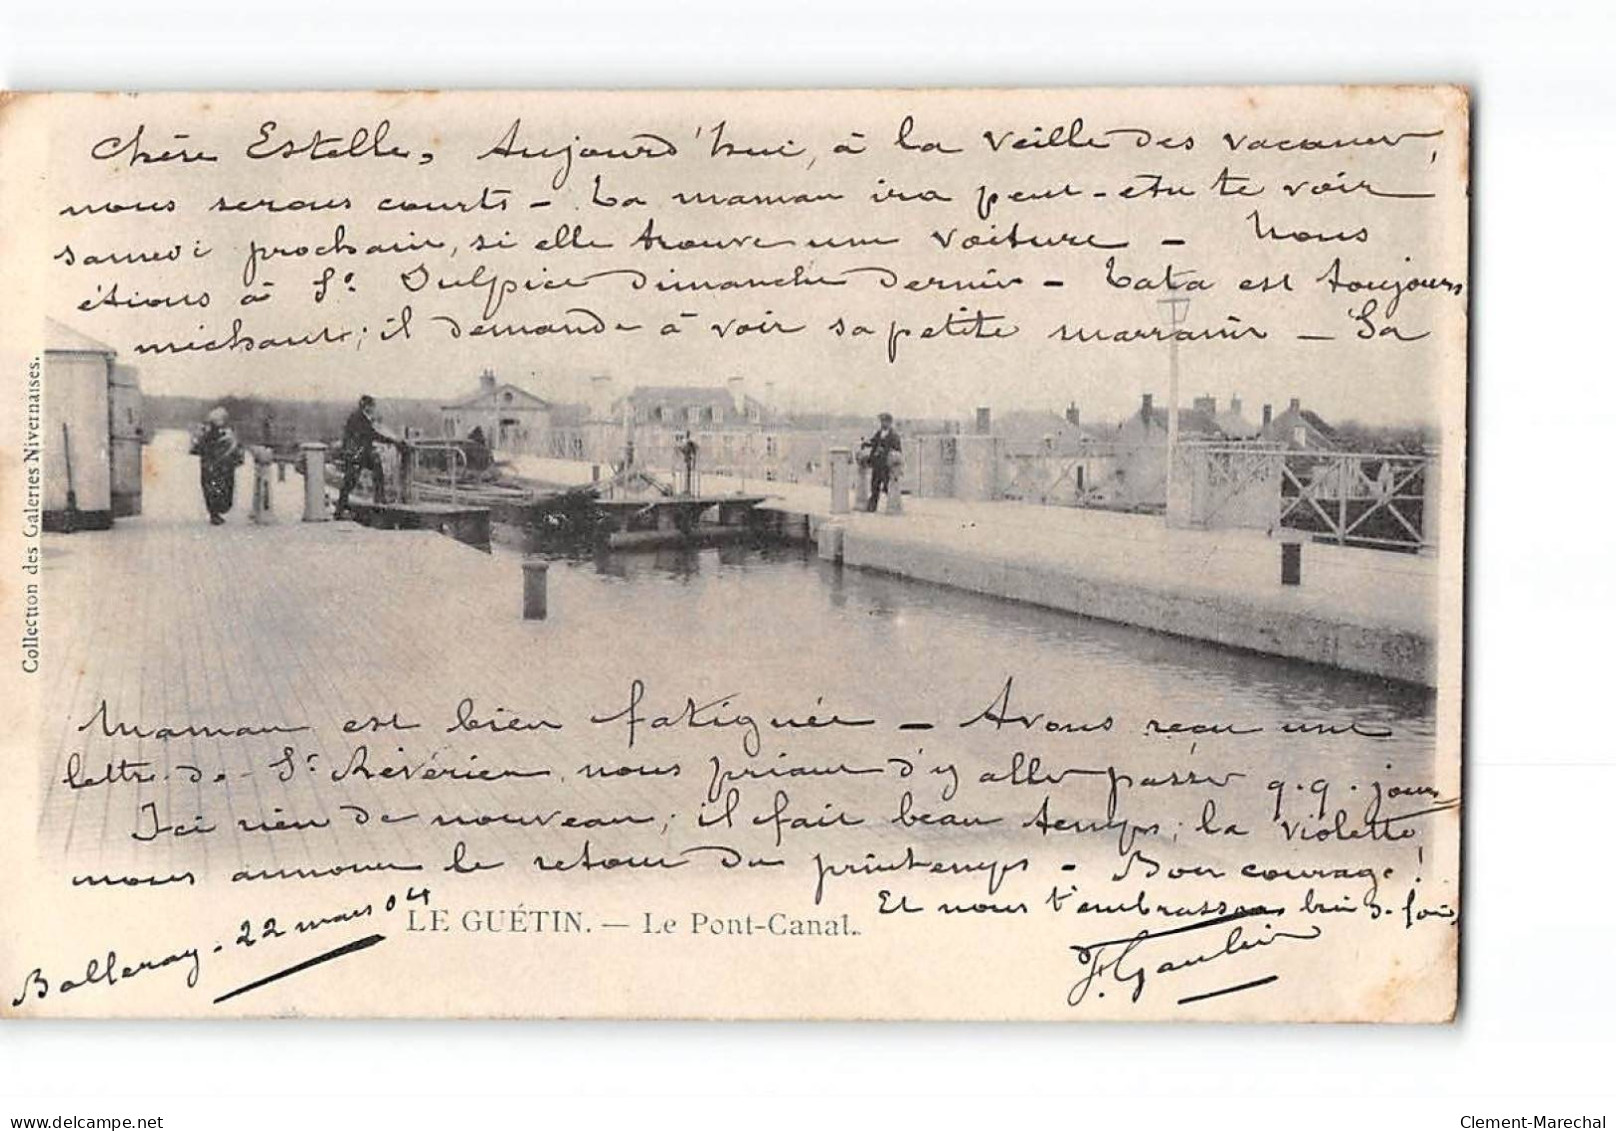 Chère Estelle, Aujourd'hui, à la veille des vacances,
nous serons courts - Ta maman ira peut-être te voir
samedi prochain, si elle trouve une voiture - Nous
étions à St Sulpice dimanche dernier - Tata est toujours
michaure; il demande à voir sa petite marraine - Sa
Maman est bien fatiguée - Avons reçu une
lettre de St Révérien nous priant d'y aller passer q.q. jours
Ici rien de nouveau; il fait beau temps; la violette
nous annonce le retour du printemps - Bon courage!
Et nous t'embrassons bien 3. fois
Balleray. 22 mars 04
F. Gaulier
LE GUÉTIN. — Le Pont-Canal.
Collection des Galeries Nivernaises.
delcampe.net
Clement-Marechal